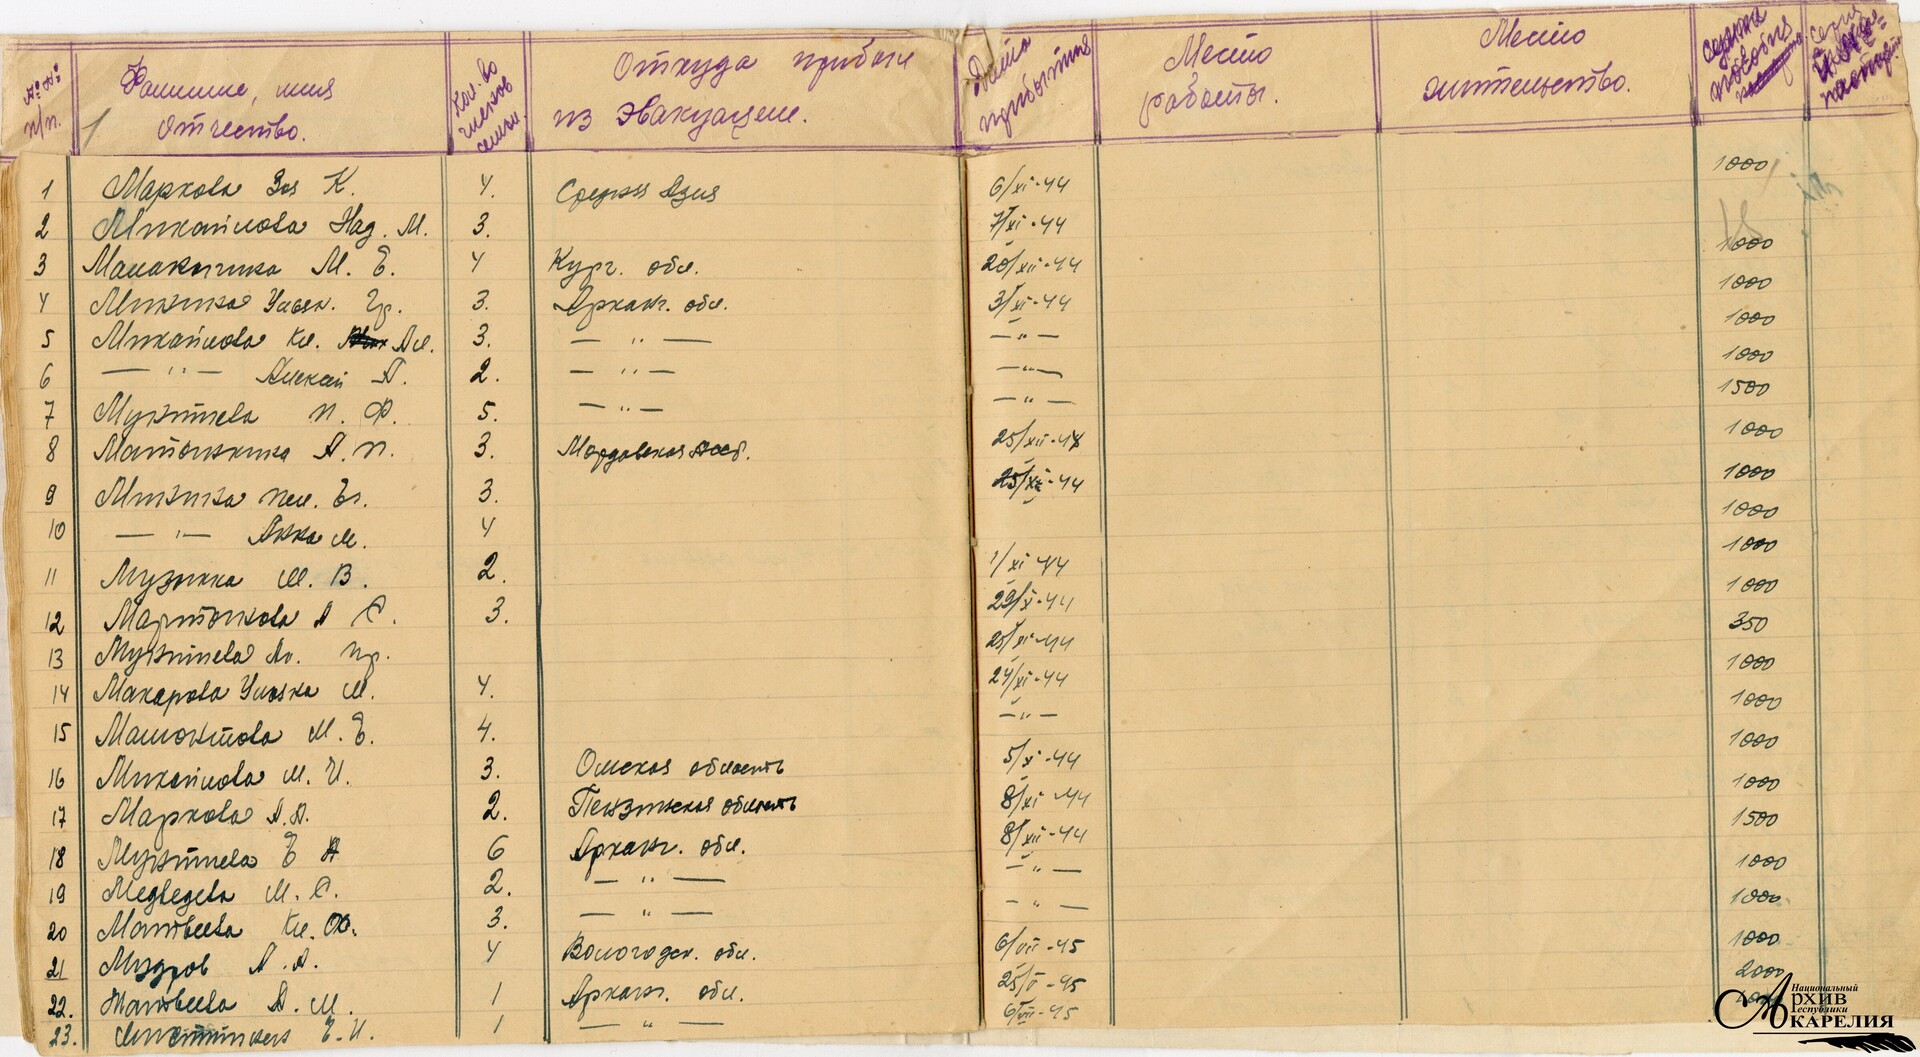 № №
п/п.
Фамилие, имя
отчество.
Кол. во
членов
семьи.
Откуда прибыли
из Эвакуации.
Дата
прибытия
Место
работы.
Место
жительства.
сумма
пособия
1 Маркова Зоя К. 4. Средняя Азия 6/XI-44 1000
2 Михайлова Над. М. 3. 7/XI-44 1000
3 М. Е. 4 Кург. обл. 20/XII-44 1000
4 Микина Ульян. Гр. 3. Арханг. обл. 3/XI-44 1000
5 Михайлова Кл. Ал. 3. — " — — " — 1000
6 — " — Алексей А. 2. — " — — " — 1500
7 П. Ф. 5. — " — — " — 1000
8 А. П. 3. Мордовская 25/XII-44 1000
9 Микина Пел. Ег. 3. 25/XII-44 1000
10 — " — Анна М. 4 1000
11 М. В. 2. 1/XI-44 1000
12 Мартынова А С. 3. 29/X-44 350
13 Пр. 25/XI-44 1000
14 Макарова Ульяна М. 4. 24/XI-44 1000
15 М. Е. 4. — " — 1000
16 Михайлова М. И. 3. Омская область 5/X-44 1000
17 Маркова А.А. 2. Пензинская область 8/XI-44 1500
18 Е 6 Арханг. обл. 8/XII-44 1000
19 Медведева М. С. 2. — " — — " — 1000
20 Матвеева Кл. 3. — " — — " — 1000
21 Мудров А.А. 4 Вологодск. обл. 6/VII-45 2000
22. Матвеева А. М. 1 Арханг. обл. 25/V-45
23. Е. И. 1 — " — 6/VII-45
Национальный
Архив
Республики
Карелия